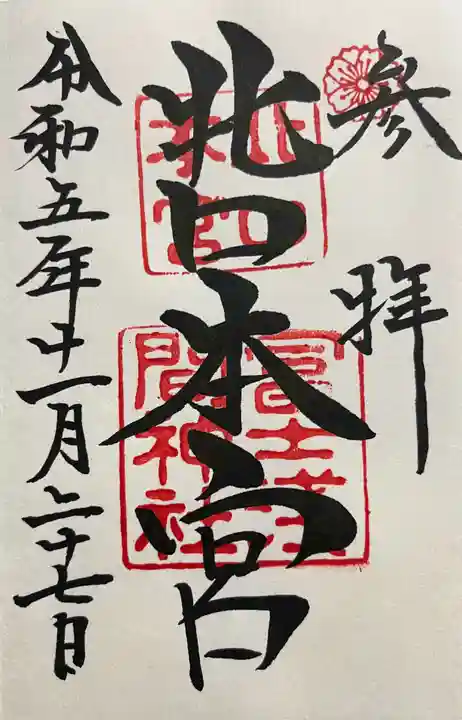 参拝
北口本宮
北口本宮
冨士浅間神社
令和五年十一月二十七日